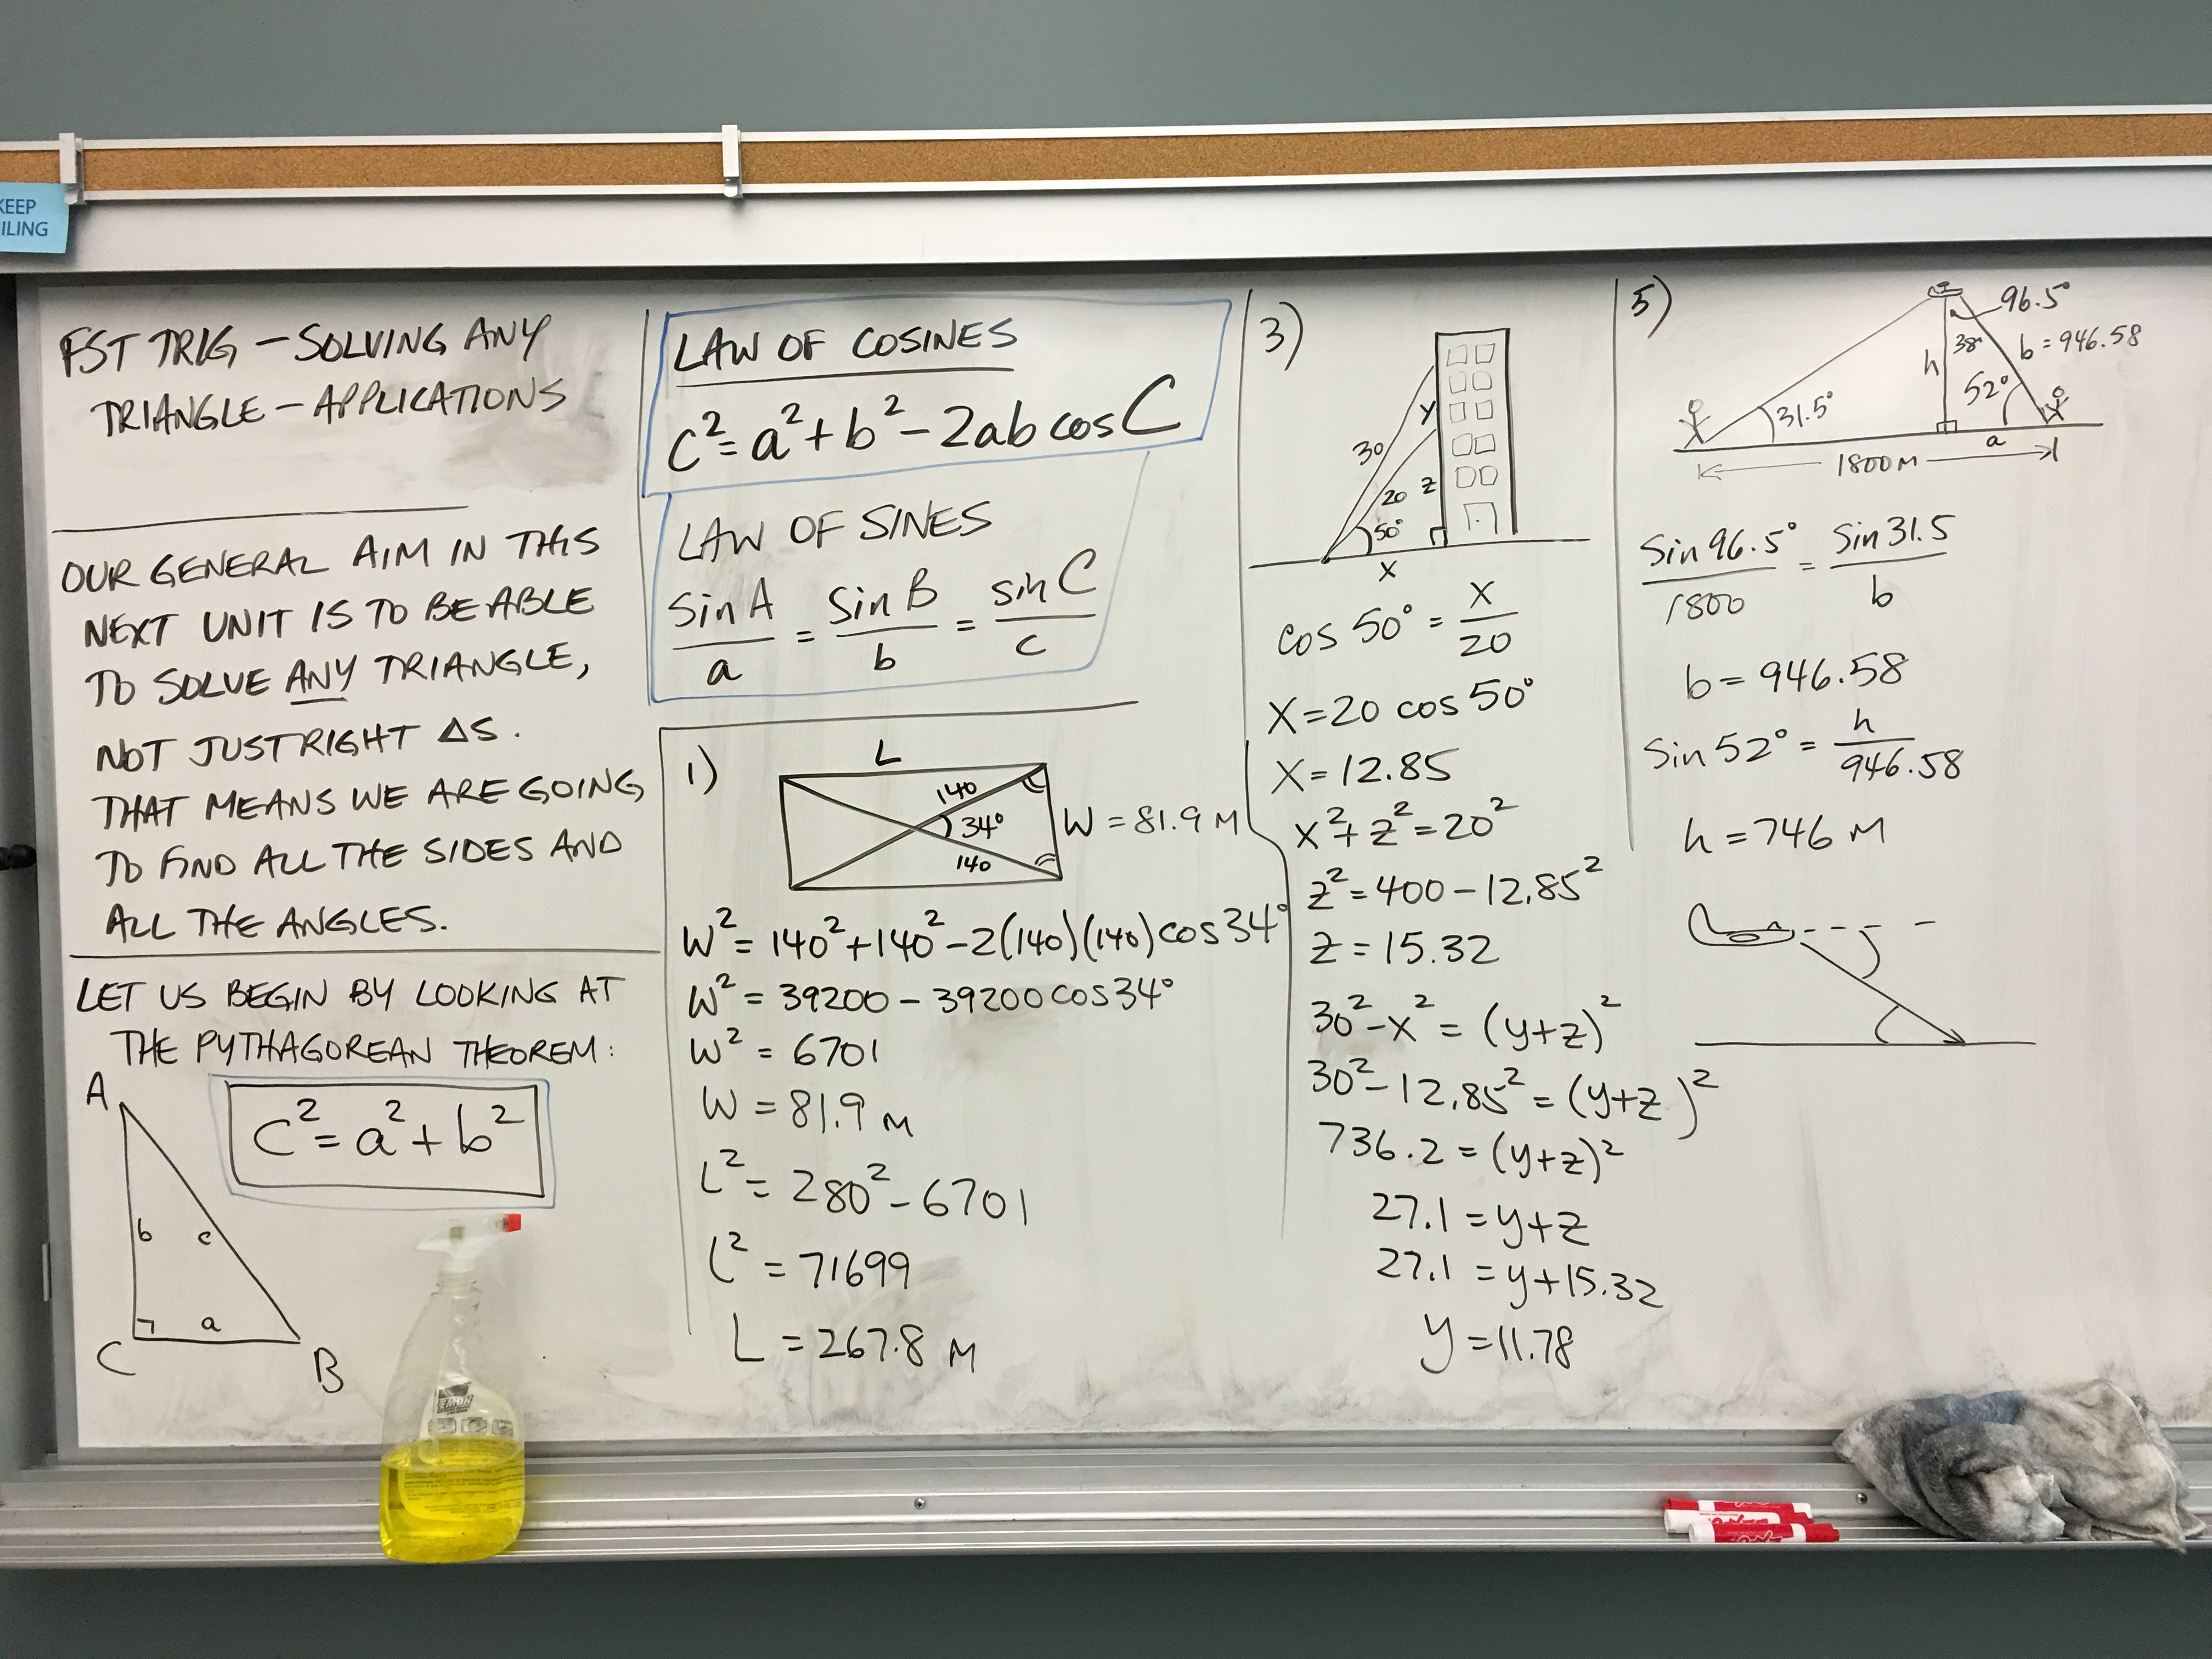 KEEP
ILING
FST TRIG – SOLVING ANY
TRIANGLE – APPLICATIONS
OUR GENERAL AIM IN THIS
NEXT UNIT IS TO BE ABLE
TO SOLVE ANY TRIANGLE,
NOT JUST RIGHT ΔS.
THAT MEANS WE ARE GOING
TO FIND ALL THE SIDES AND
ALL THE ANGLES.
LET US BEGIN BY LOOKING AT
THE PYTHAGOREAN THEOREM:
A
c² = a² + b²
b c
a
C B
LAW OF COSINES
c² = a² + b² – 2ab cos C
LAW OF SINES
sin A / a = sin B / b = sin C / c
1)
L
140
34°
140
W = 81.9 M
W² = 140² + 140² – 2(140)(140) cos 34°
W² = 39200 – 39200 cos 34°
W² = 6701
W = 81.9 M
L² = 280² – 6701
L² = 71699
L = 267.8 M
3)
y
30
20 z
50°
x
cos 50° = x / 20
x = 20 cos 50°
x = 12.85
x² + z² = 20²
z² = 400 – 12.85²
z = 15.32
30² – x² = (y+z)²
30² – 12.85² = (y+z)²
736.2 = (y+z)²
27.1 = y+z
27.1 = y+15.32
y = 11.78
5)
96.5°
h 38° b = 946.58
31.5° 52°
a
1800 M
sin 96.5° / 1800 = sin 31.5 / b
b = 946.58
sin 52° = h / 946.58
h = 746 M